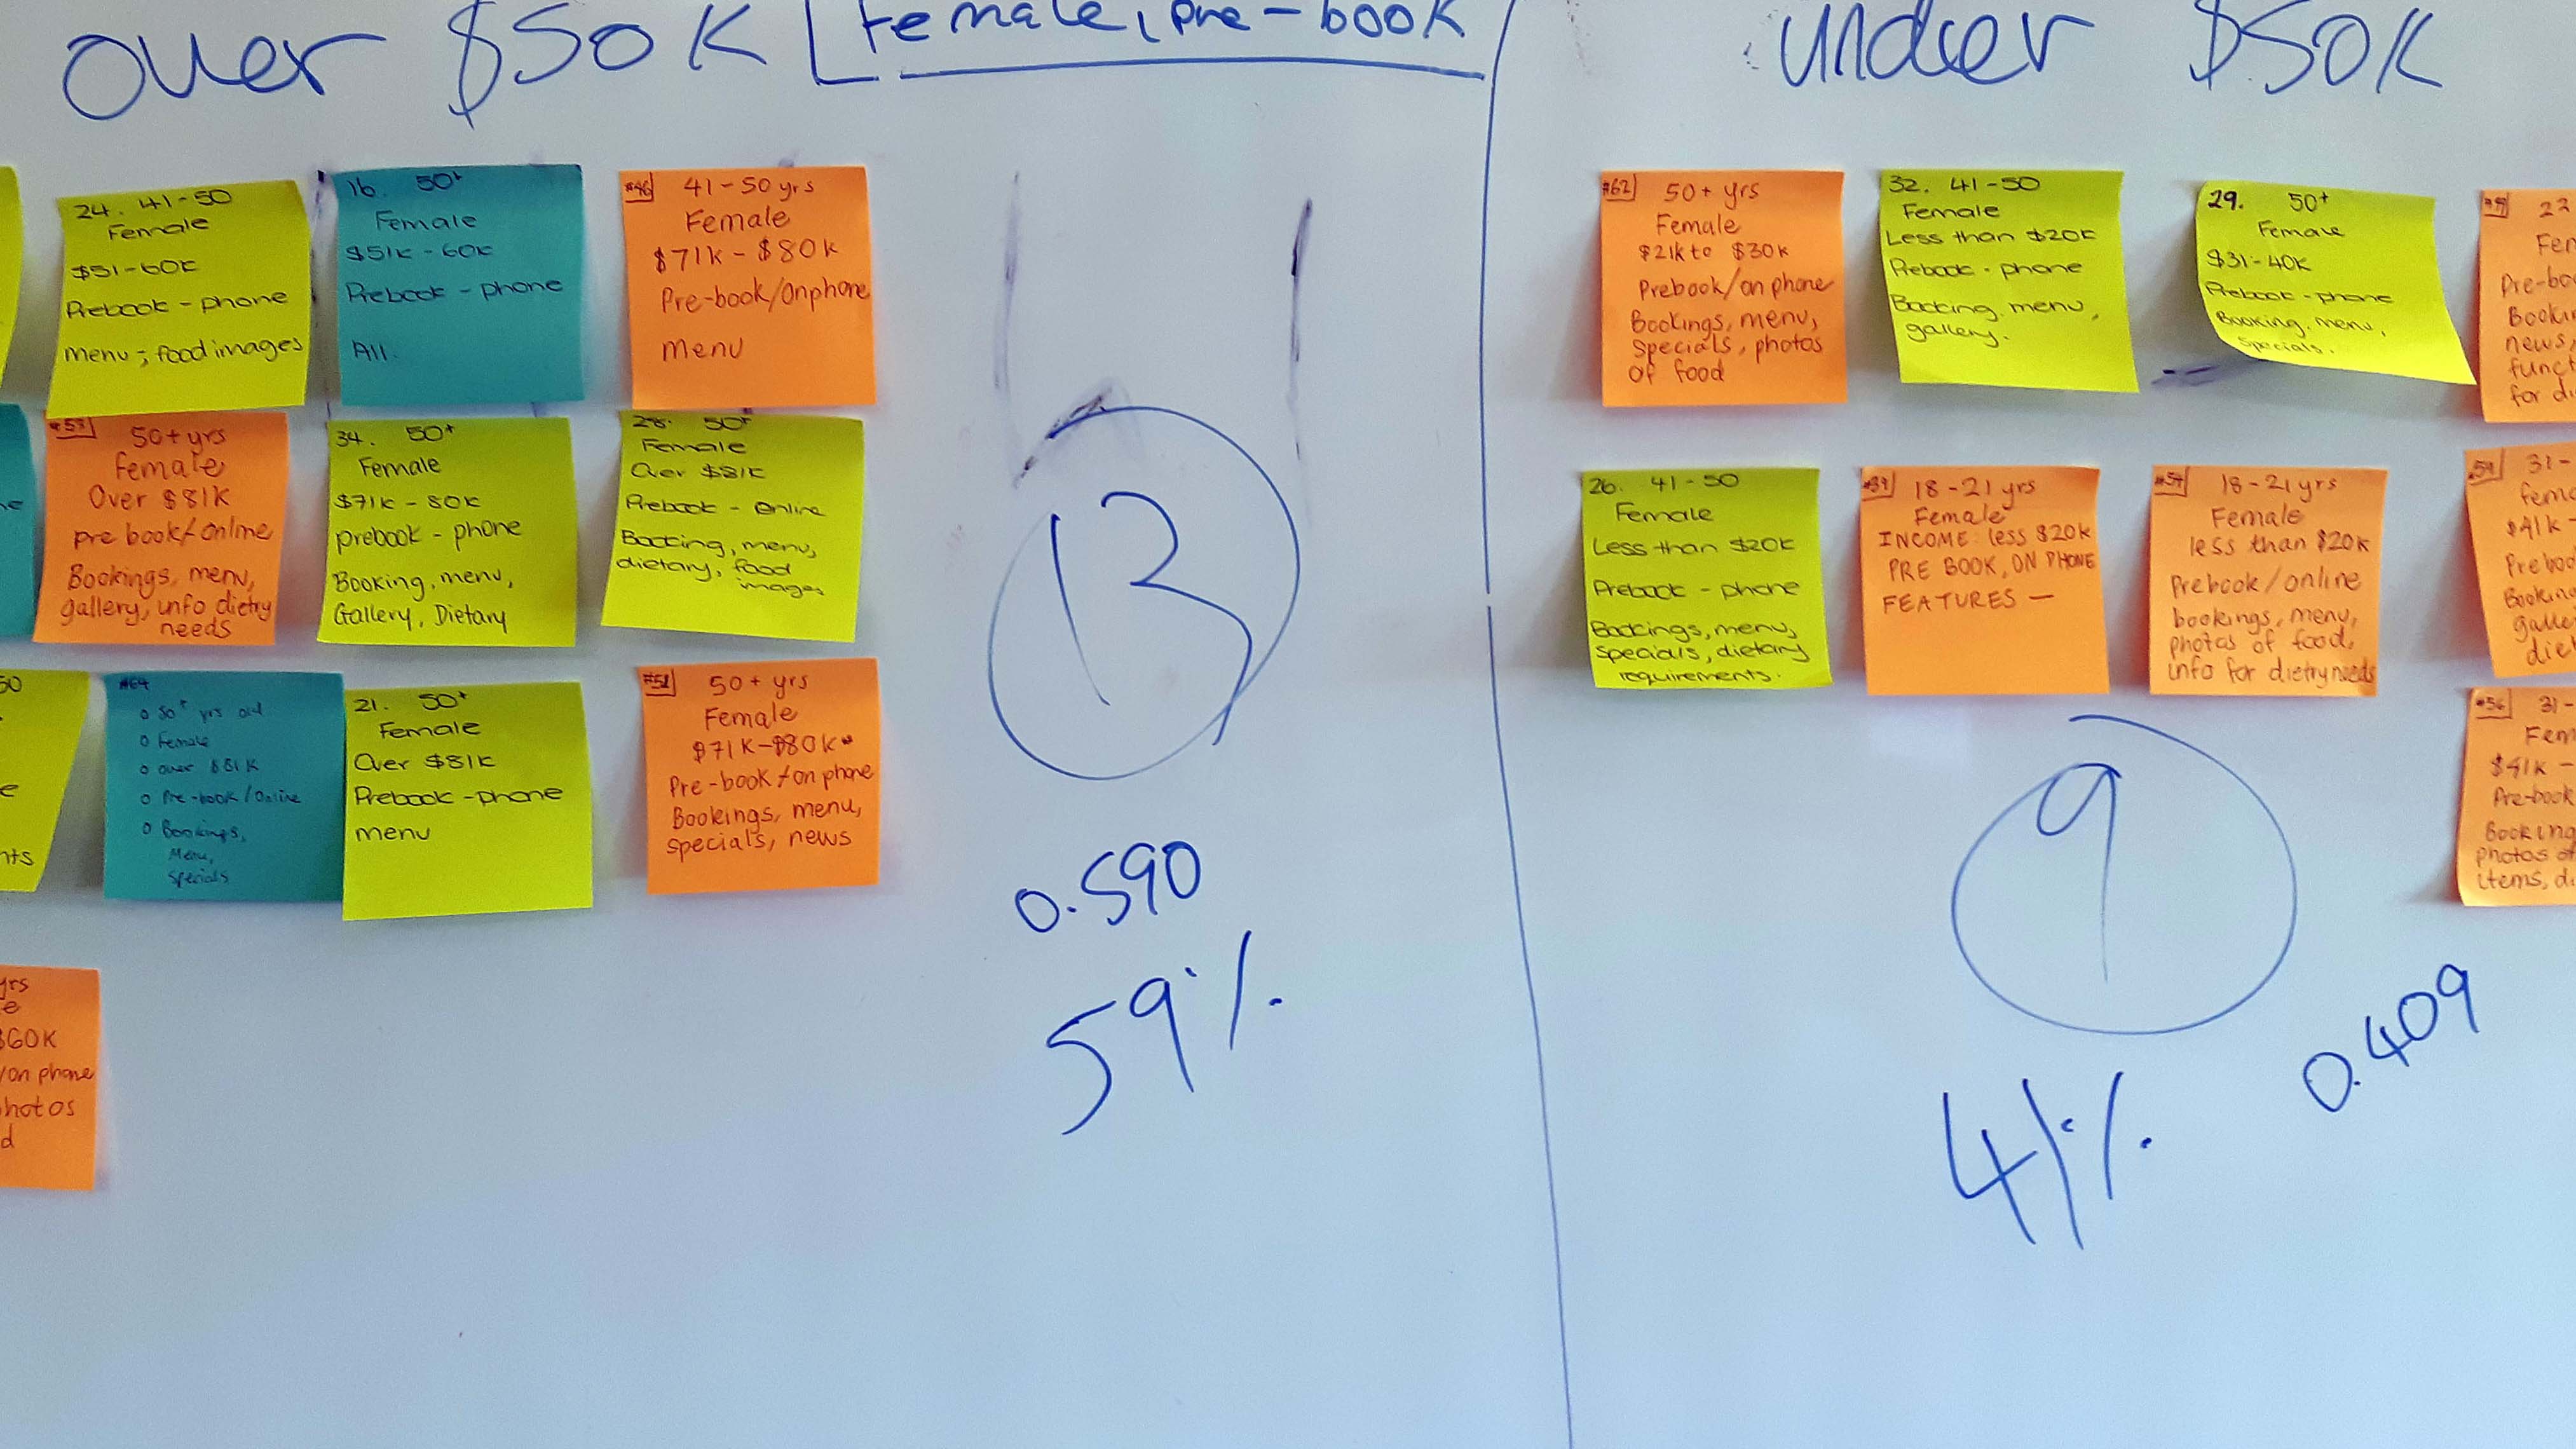 over $50K
Female, pre-book
under $50K
24. 41-50
Female
$51-60K
Prebook - phone
menu ; food images
16. 50+
Female
$51K - 60K
Prebook - phone
All.
#46 41-50 yrs
Female
$71k - $80k
Pre-book/Onphone
Menu
#53 50+ yrs
female
Over $81k
pre book/online
Bookings, menu,
gallery, info dietry
needs
34. 50+
Female
$71K - 80K
prebook - phone
Booking, menu,
Gallery, Dietary
28. 50+
Female
Over $81K
Prebook - online
Booking, menu,
dietary, food
images
50
e
nts
#64
50+ yrs old
Female
over $81K
Pre-book/Online
Bookings,
Menu,
Specials
21. 50+
Female
Over $81K
Prebook - phone
menu
50+ yrs
Female
$71K-$80K
Pre-book/on phone
Bookings, menu,
specials, news
yrs
e
$60K
/on phone
hotos
d
13
0.590
59%
#62 50+ yrs
Female
$21k to $30k
Prebook/on phone
Bookings, menu,
Specials, photos
of food
32. 41-50
Female
Less than $20K
Prebook - phone
Booking, menu,
gallery.
29. 50+
Female
$31-40K
Prebook - phone
Booking, menu,
Specials.
23
Fem
Pre-bo
Bookin
news,
funct
for di
26. 41-50
Female
Less than $20K
Prebook - phone
Bookings, menu,
specials, dietary
requirements.
18-21 yrs
Female
INCOME: less $20k
PRE BOOK, ON PHONE
FEATURES —
18-21 yrs
Female
less than $20k
Prebook/online
bookings, menu,
photos of food,
info for dietry needs
31-
fema
$41k-
Preboo
Booking
galle
diet
#56 31-
Fem
$41k -
Pre-book
Booking
photos of
items, di
9
0.409
41%